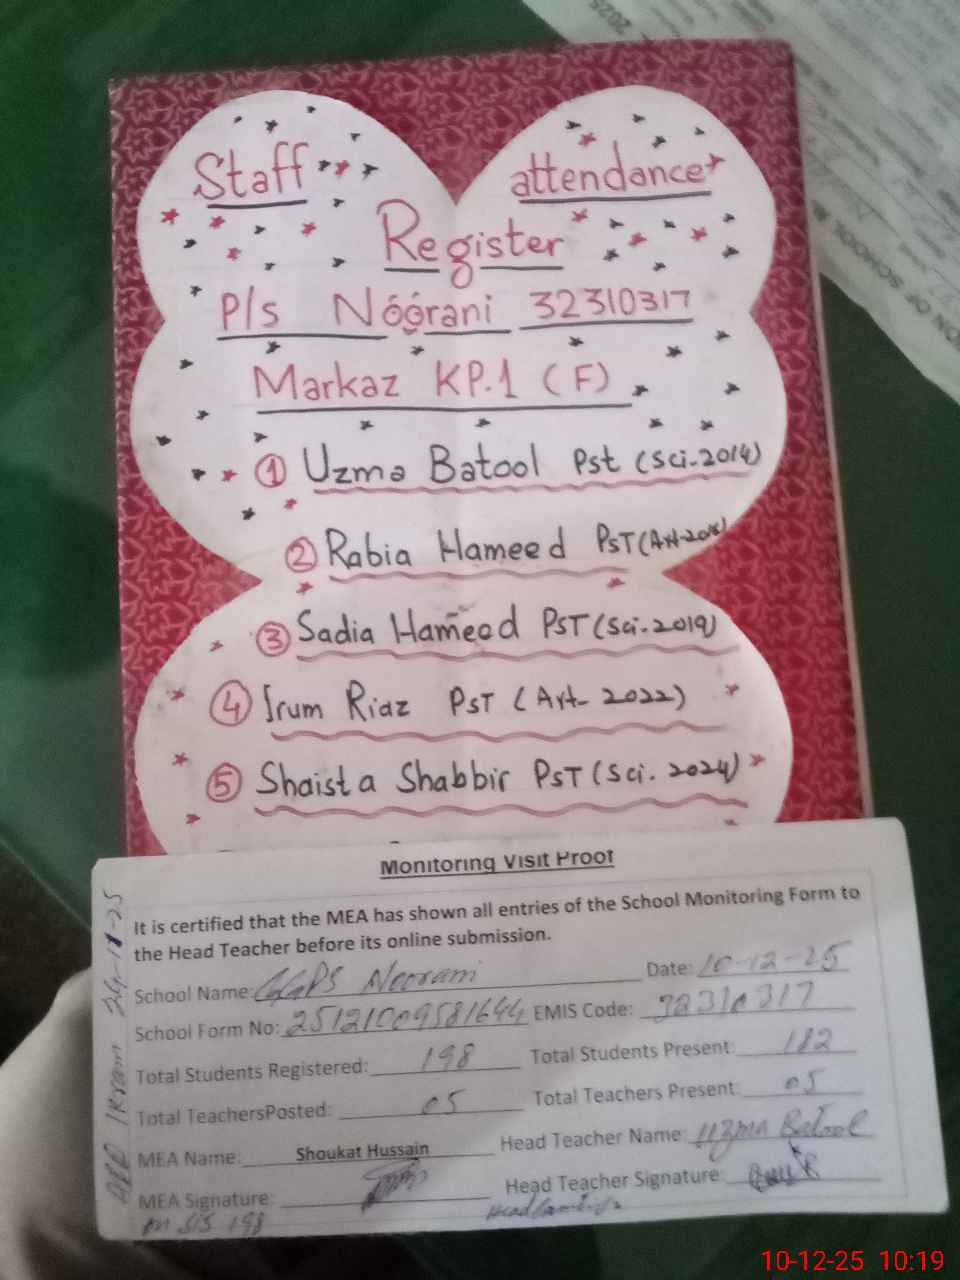 Staff attendance
Register
P/s Noorani 32310317
Markaz KP.1 (F)
1 Uzma Batool Pst (Sci-2014)
2 Rabia Hameed PST (Art-
3 Sadia Hameed PST (Sci-2019)
4 Irum Riaz PST (Art- 2022)
5 Shaista Shabbir PST (Sci. 2024)
Monitoring Visit Proof
It is certified that the MEA has shown all entries of the School Monitoring Form to
the Head Teacher before its online submission.
School Name: GGPS Noorani Date: 10-12-25
School Form No: 25121009581644 EMIS Code: 32310317
Total Students Registered: 198 Total Students Present: 182
Total TeachersPosted: 05 Total Teachers Present: 05
MEA Name: Shoukat Hussain Head Teacher Name: Uzma Batool
MEA Signature: Head Teacher Signature:
on SIS 198
AEO Ikram 24-11-25
2025
ON OF SCHOOL
10-12-25 10:19